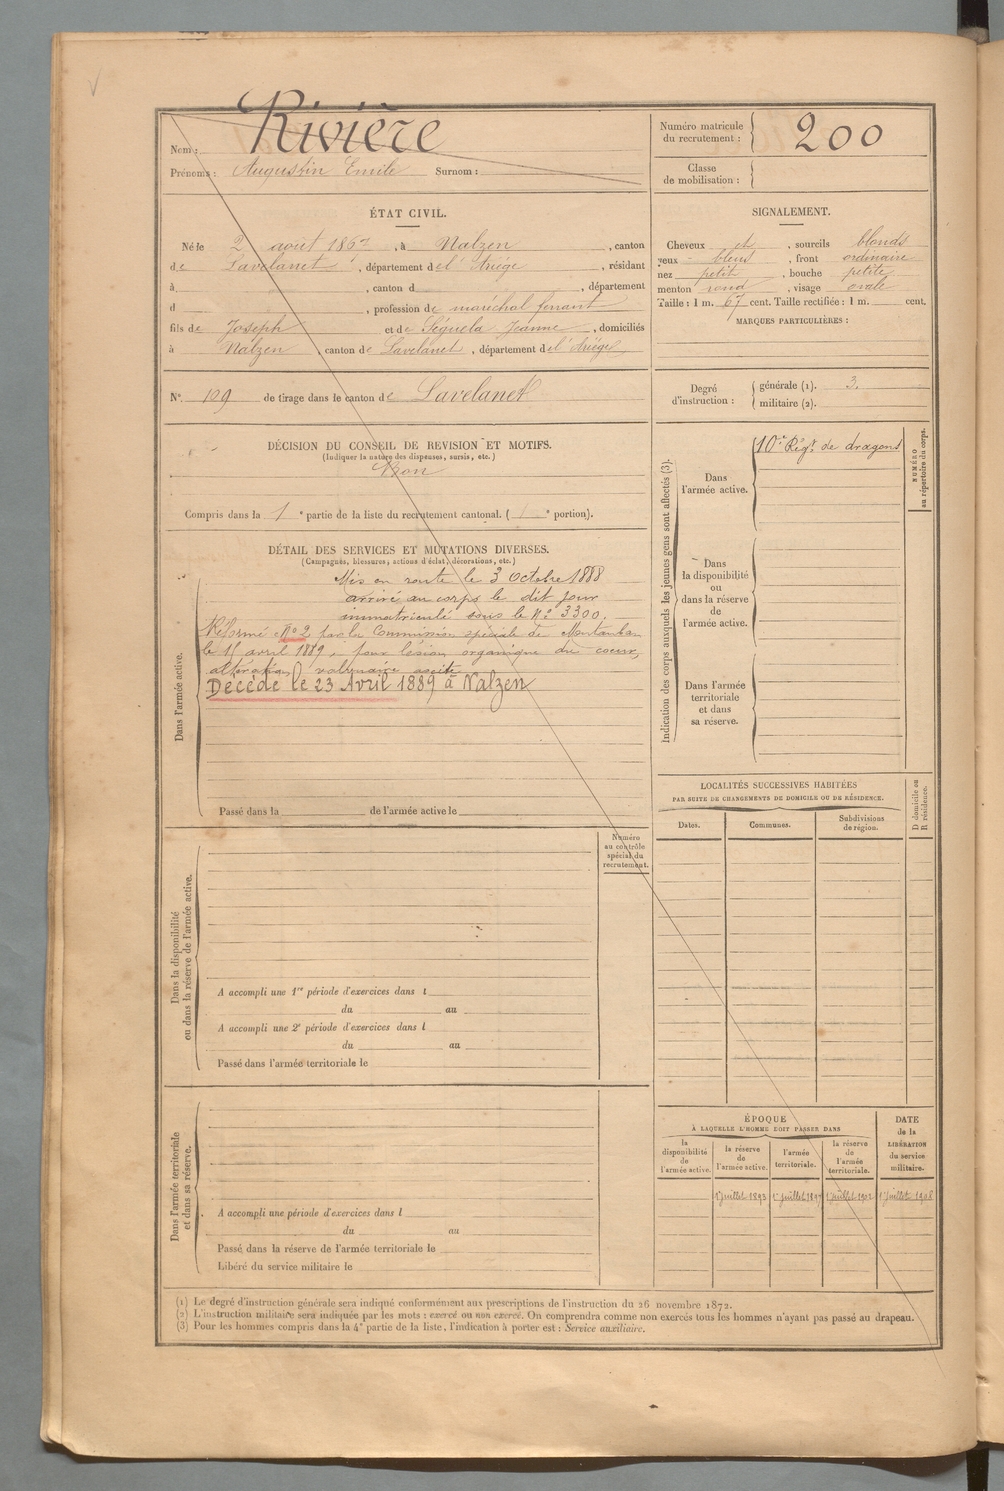 Nom : Rivière
Prénoms : Augustin Emile Surnom :
Numéro matricule
du recrutement : 200
Classe
de mobilisation :
ÉTAT CIVIL.
Né le 2 août 1867, à Nalzen, canton
de Lavelanet, département de l'Ariège, résidant
à , canton d , département
d , profession de maréchal ferrant
fils de Joseph et de Séguela Jeanne, domiciliés
à Nalzen, canton de Lavelanet, département de l'Ariège
SIGNALEMENT.
Cheveux et , sourcils blonds
yeux bleus , front ordinaire
nez petit , bouche petite
menton rond , visage ovale
Taille : 1 m. 67 cent. Taille rectifiée : 1 m. cent.
MARQUES PARTICULIÈRES :
N° 109 de tirage dans le canton de Lavelanet
Degré
d'instruction :
générale (1). 3.
militaire (2).
DÉCISION DU CONSEIL DE REVISION ET MOTIFS.
(Indiquer la nature des dispenses, sursis, etc.)
Bon
Compris dans la 1e partie de la liste du recrutement cantonal. ( e portion).
DÉTAIL DES SERVICES ET MUTATIONS DIVERSES.
(Campagnes, blessures, actions d'éclat, décorations, etc.)
Dans l'armée active.
Mis en route le 3 Octobre 1888
arrivé au corps le dit jour
immatriculé sous le N° 3300.
Réformé No 2 par la Commission spéciale de Montauban
le avril 1889, pour lésion organique du cœur,
altération
Décédé le 23 Avril 1889 à Nalzen
Passé dans la de l'armée active le
Indication des corps auxquels les jeunes gens sont affectés (3).
Dans
l'armée active.
10e Régt. de dragons
NUMÉRO
au répertoire du corps.
Dans
la disponibilité
ou
dans la réserve
de
l'armée active.
Dans l'armée
territoriale
et dans
sa réserve.
LOCALITÉS SUCCESSIVES HABITÉES
PAR SUITE DE CHANGEMENTS DE DOMICILE OU DE RÉSIDENCE.
D domicile ou
R résidence.
Dates.
Communes.
Subdivisions
de région.
Numéro
au contrôle
spécial du
recrutement.
Dans la disponibilité
ou dans la réserve de l'armée active.
A accompli une 1re période d'exercices dans l
du au
A accompli une 2e période d'exercices dans l
du au
Passé dans l'armée territoriale le
Dans l'armée territoriale
et dans sa réserve.
A accompli une période d'exercices dans l
du au
Passé dans la réserve de l'armée territoriale le
Libéré du service militaire le
ÉPOQUE
À LAQUELLE L'HOMME DOIT PASSER DANS
la
disponibilité
de
l'armée active.
la réserve
de
l'armée active.
l'armée
territoriale.
la réserve
de
l'armée
territoriale.
DATE
de la
LIBÉRATION
du service
militaire.
1er juillet 1893 1er juillet 1897 1er juillet 1902 1er juillet 1908
(1) Le degré d'instruction générale sera indiqué conformément aux prescriptions de l'instruction du 26 novembre 1872.
(2) L'instruction militaire sera indiquée par les mots : exercé ou non exercé. On comprendra comme non exercés tous les hommes n'ayant pas passé au drapeau.
(3) Pour les hommes compris dans la 4e partie de la liste, l'indication à porter est : Service auxiliaire.